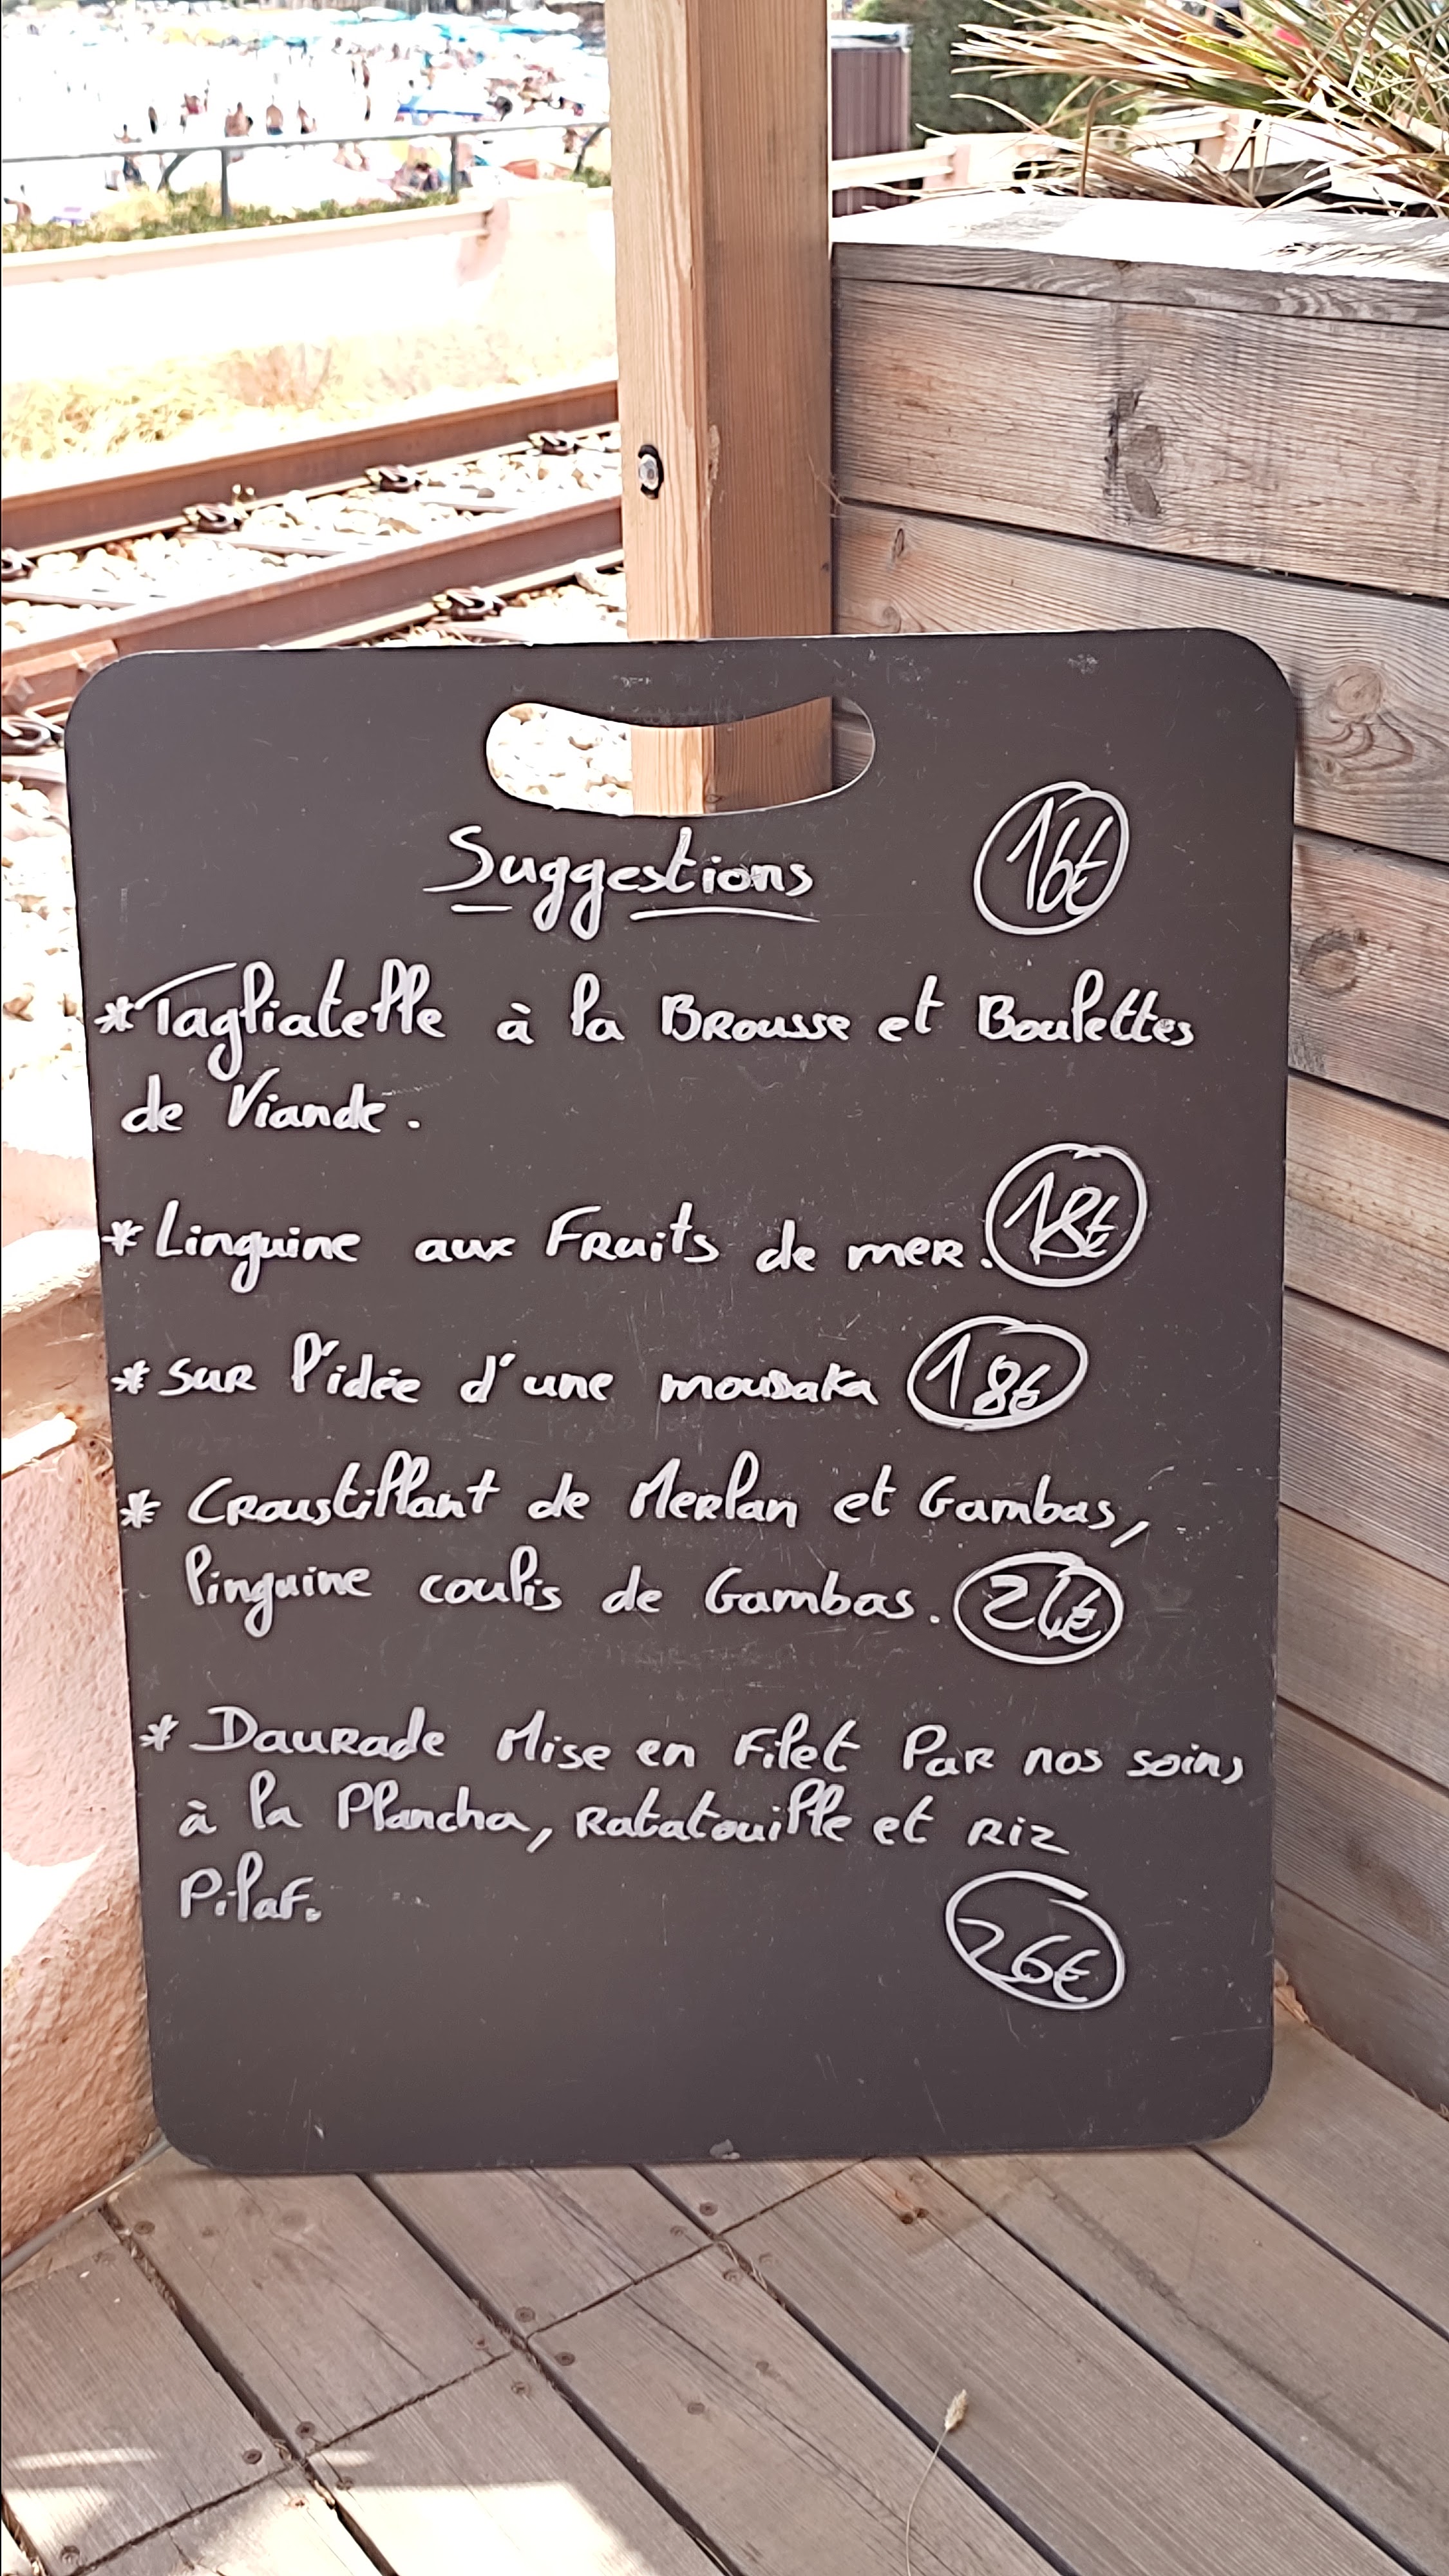 Suggestions 16€
*Tagliatelle à la Brousse et Boulettes
de Viande.
*Linguine aux Fruits de mer. 18€
*Sur l'idée d'une moussaka 18€
* Croustillant de Merlan et Gambas,
linguine coulis de Gambas.
* Daurade Mise en Filet Par nos soins
à la Plancha, Ratatouille et Riz
Pilaf.
26€